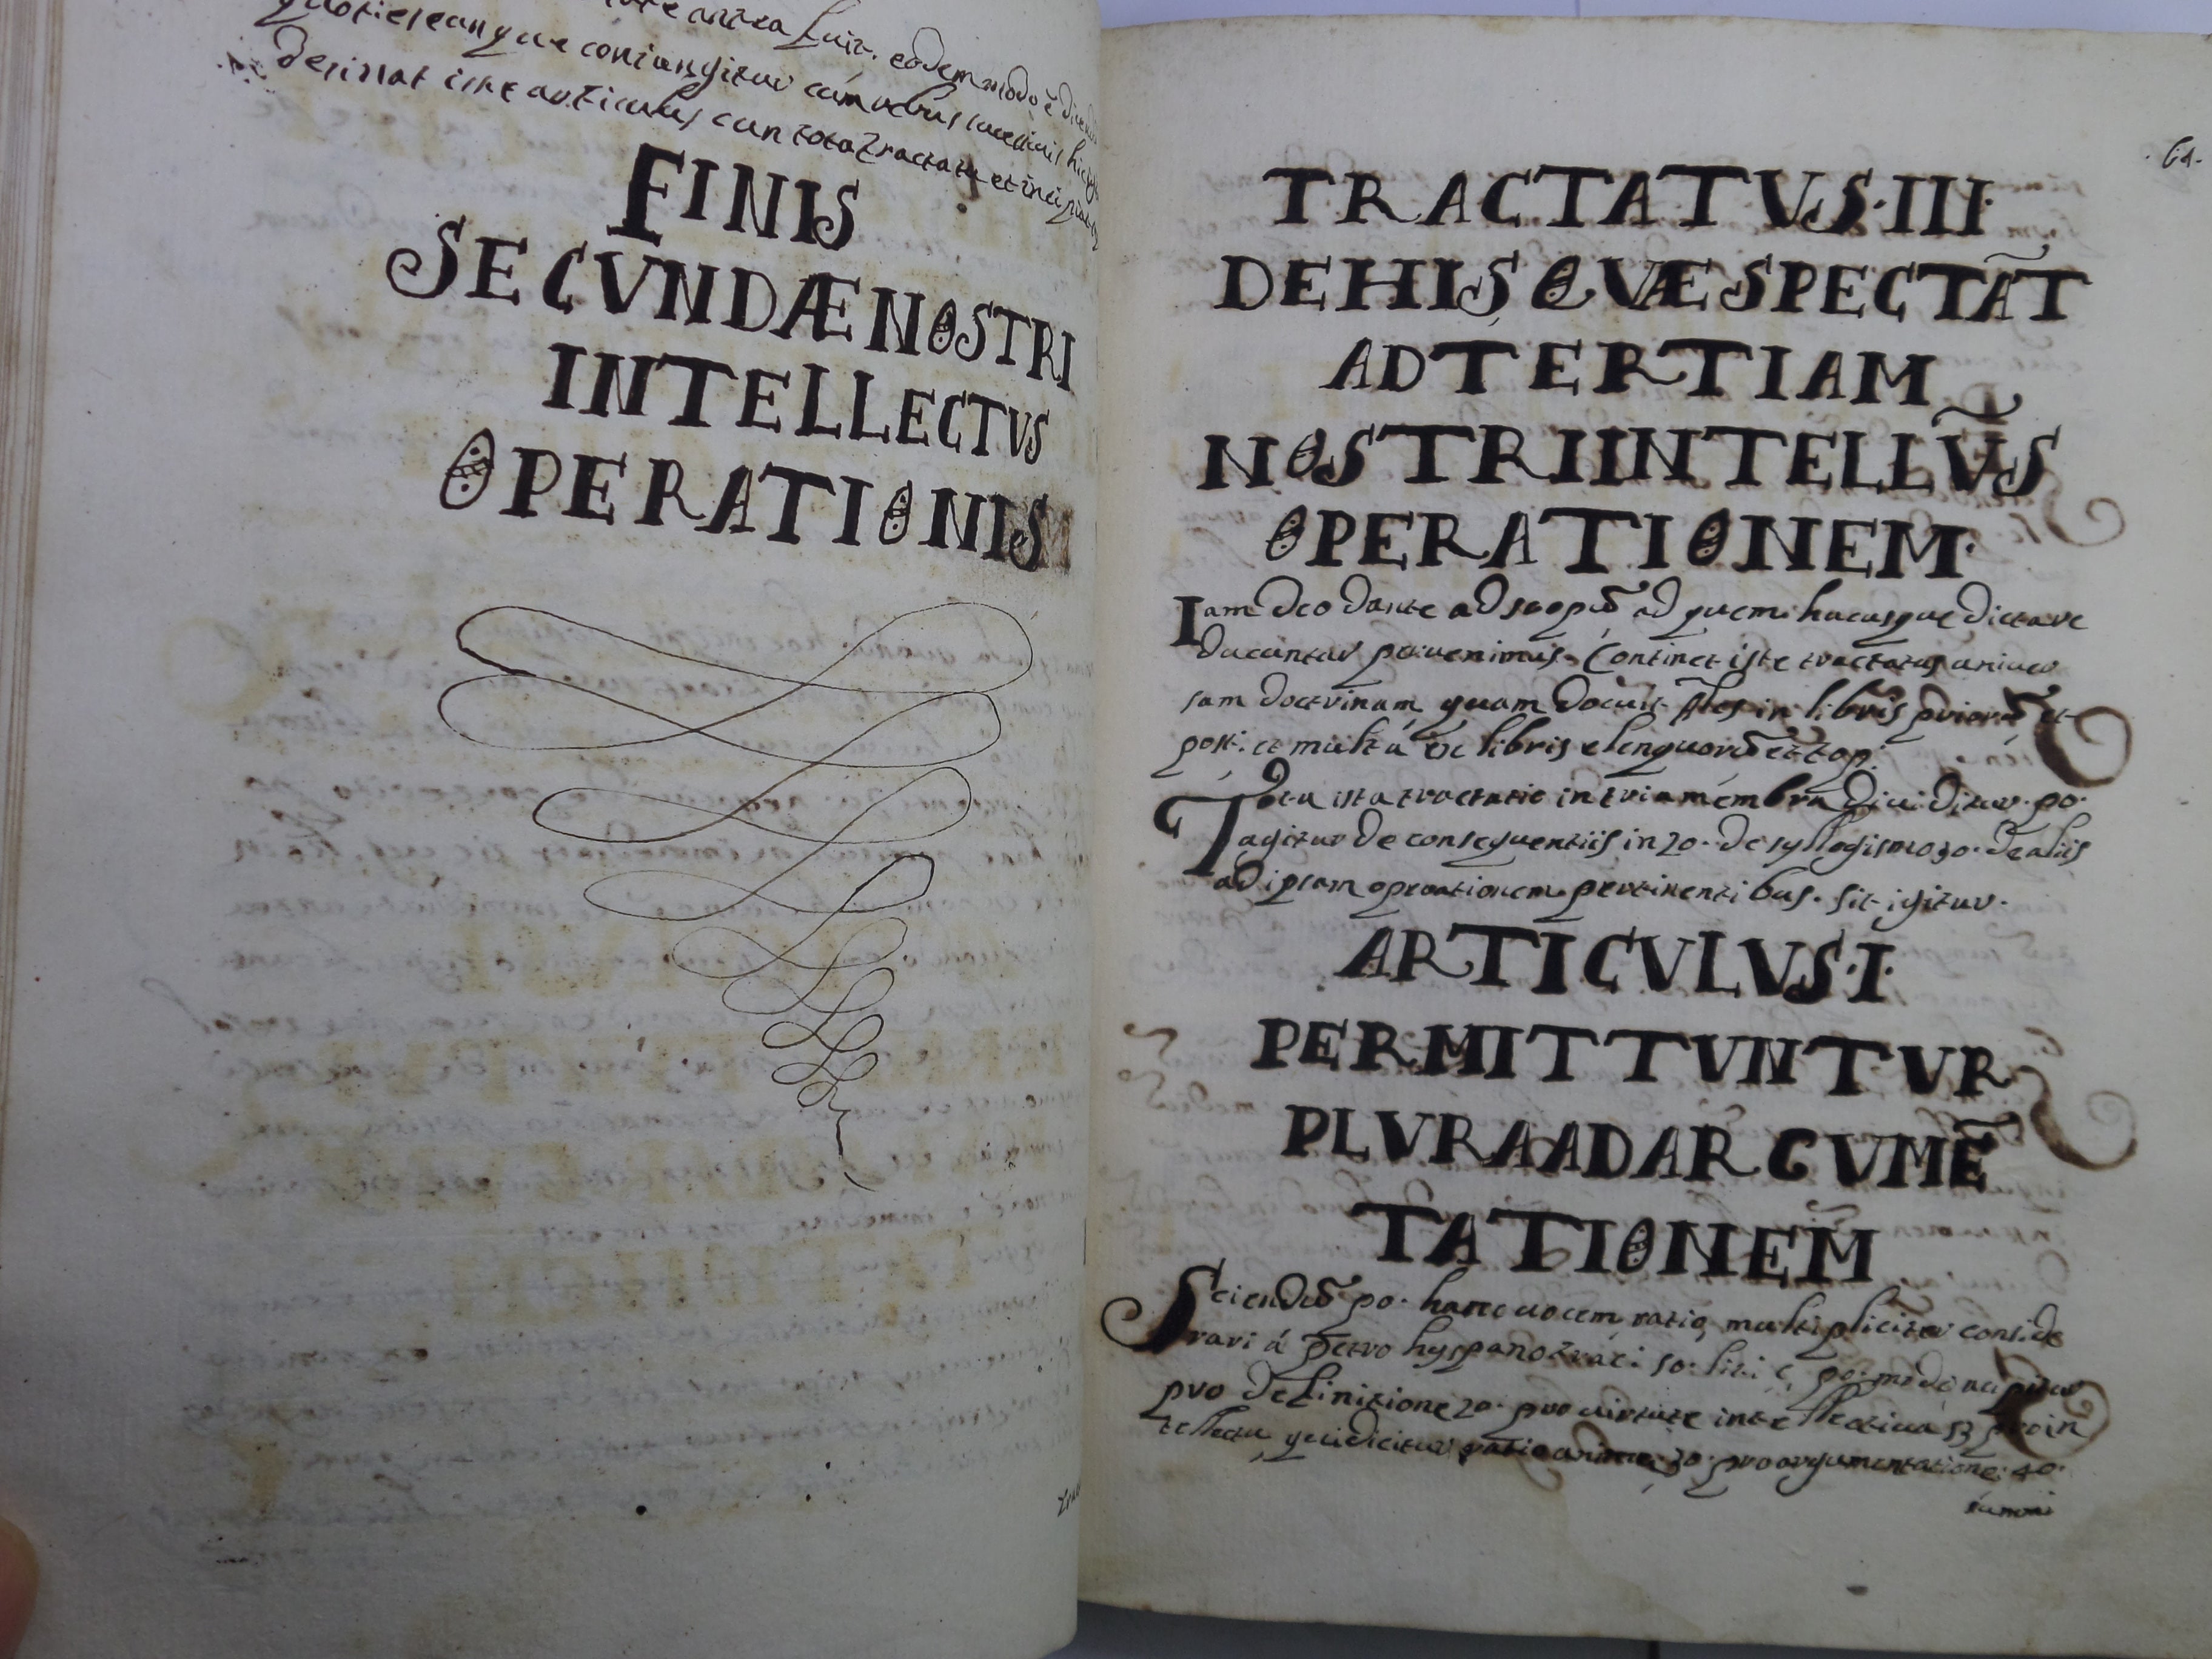 antea fuit. eodem modo ē
quotiescunque coniungitur cum verbis
desinat iste articulus cum toto tractatu et incipiat
FINIS
SECVNDÆ NOSTRI
INTELLECTVS
OPERATIONIS
61.
TRACTATVS·III·
DE HIS QVÆ SPECTÃT
AD TERTIAM
NOSTRI INTELLṼS
OPERATIONEM·
Iam Deo dante ad scopũ ad quem hucusque dictave
ducuntur pervenimus. Continet iste tractatus univer
sam doctrinam quam docuit Ales in libris priorũ et
post. et multa ex libris elenquorũ et top.
Tota ista tractatio in tria membra dividitur. po.
agitur de consequentiis in 2o. de syllogismo 3o. de aliis
ad ipsam operationem pertinentibus. sit igitur.
ARTICVLVS·I·
PERMITTVNTVR
PLVRA AD ARGVMẼ
TATIONEM
Sciendũ po. hanc vocem ratio multipliciter conside
rari á Petro hyspano tract. so. po. modo
pro definitione 2o. pro virtute intellectiva pro in
tellectu qui dicitur ratio animæ 3o. pro argumentatione. 4o.